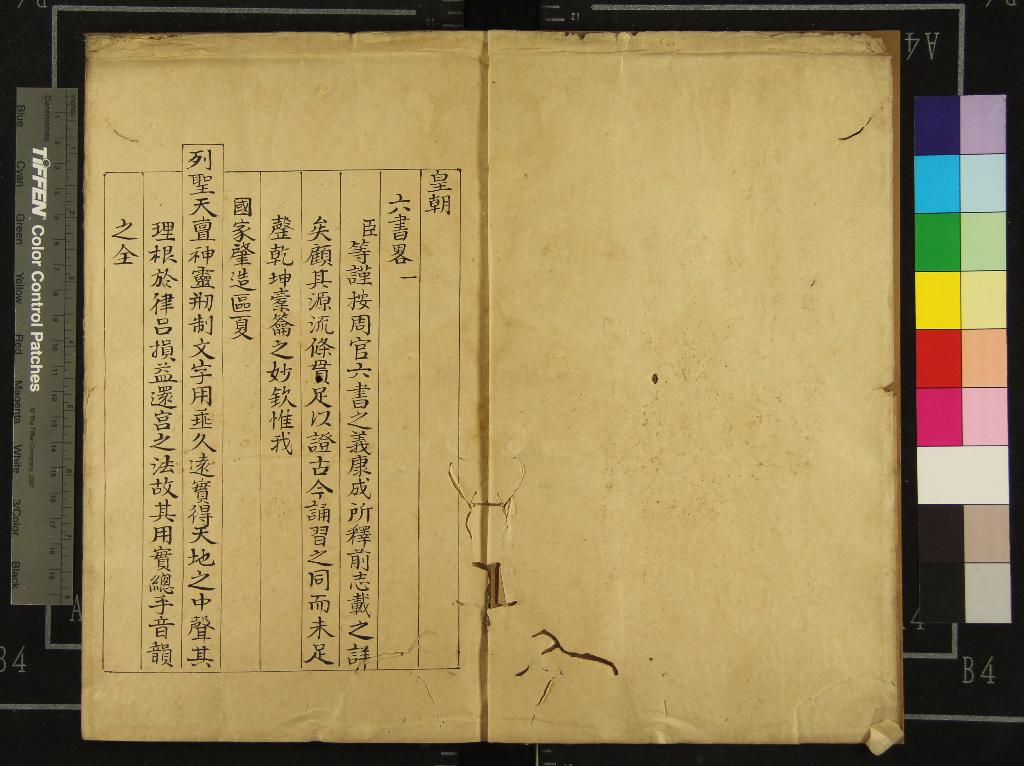 皇朝
六書畧一
臣等謹按周官六書之義康成所釋前志載之詳
矣顧其源流條貫足以證古今誦習之同而未足
罄乾坤橐籥之妙欽惟我
國家肇造區夏
列聖天亶神靈刱制文字用垂久遠實得天地之中聲其
理根於律呂損益還宮之法故其用實總乎音韻
之全
TIFFEN Color Control Patches
© The Tiffen Company, 2007
Inches
Centimetres
Blue Cyan Green Yellow Red Magenta White 3/Color Black
A4
B4
A4
A4
B4